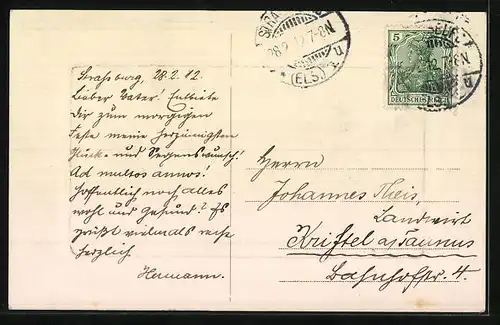 Straßburg, 28.2.12.
Lieber Vater! Entbiete
Dir zum morgigen
Feste meine herzinnigsten
Glück- und Segenswunsch!
Ad multos annos!
Hoffentlich noch alles
wohl und gesund? Es
grüßt vielmals recht
herzlich
Hermann.
28.2.12.7-8N
(ELS.)
5
DEUTSCHES REICH
12.7-8N
Herrn
Johannes Theis,
Landwirt
Kriftel a/Taunus
Bahnhofstr. 4.